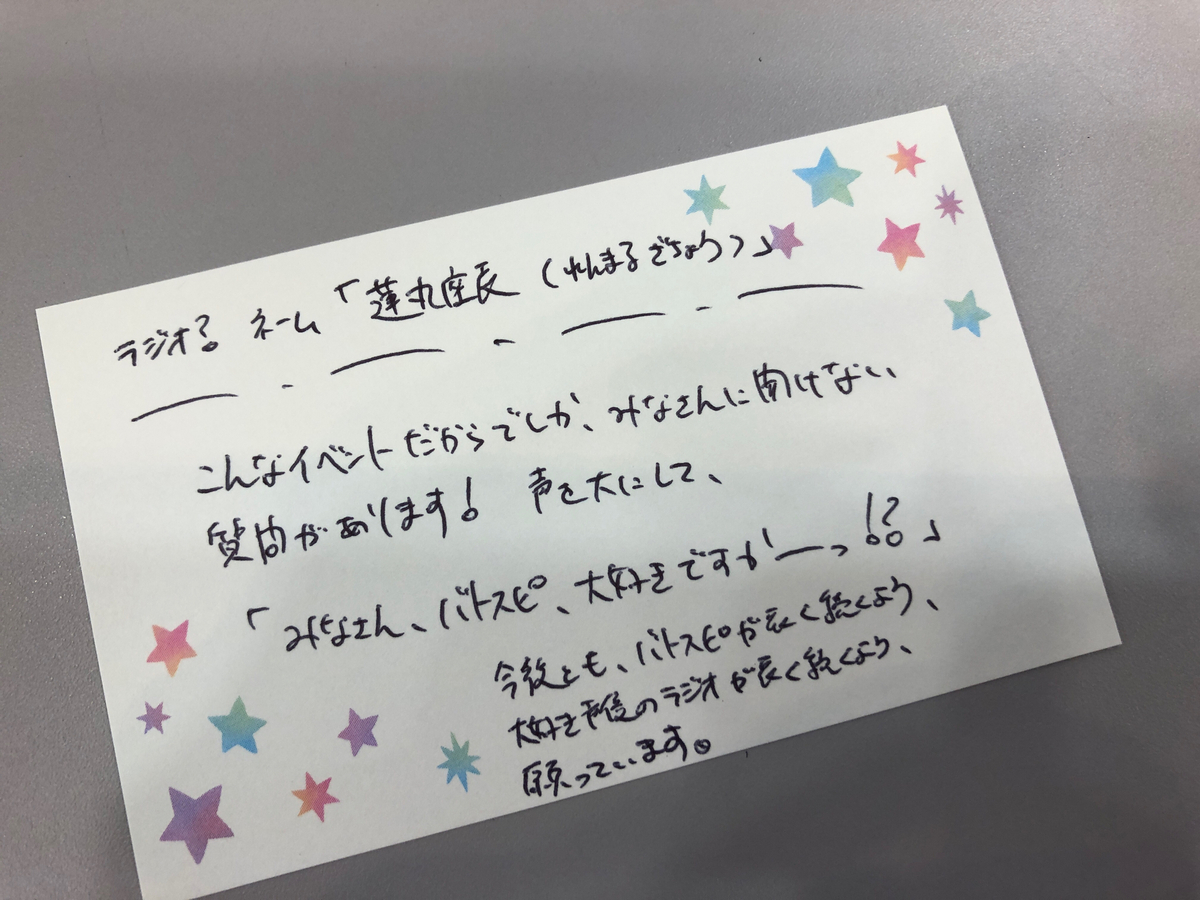 ラジオ？ネーム「蓮丸座長（れんまるざちょう）」
こんなイベントだからでしか、みなさんに聞けない
質問があります！ 声を大にして、
「みなさん、バトスピ、大好きですかーっ！？」
今後とも、バトスピが長く続くよう、
大好き声優のラジオが長く続くよう、
願っています。